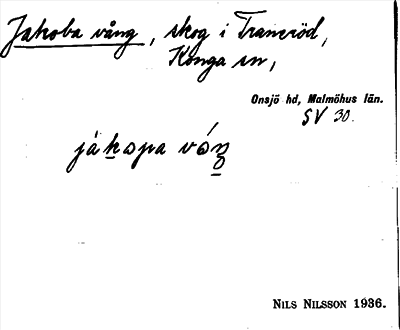 Jakoba vång, skog i Tranröd,
Konga sn,
Onsjö hd, Malmöhus län.
SV 30.
Nils Nilsson 1936.